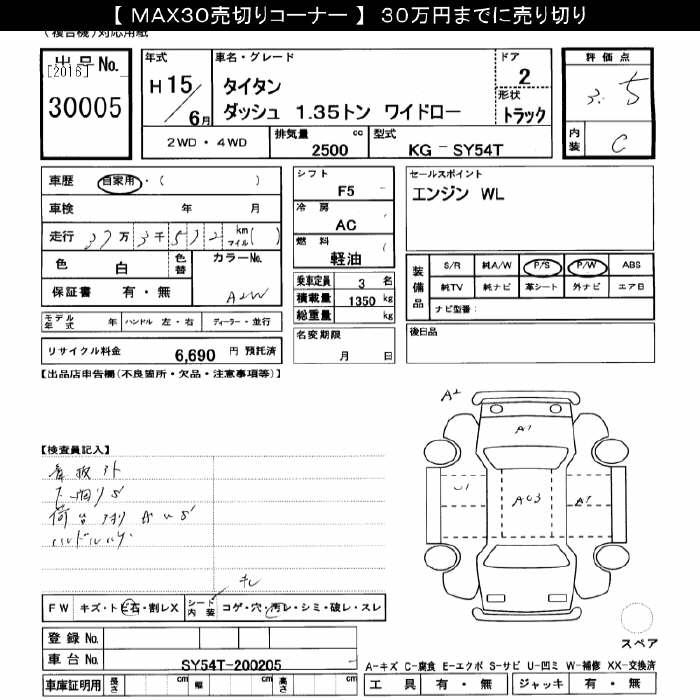 【 MAX30売切りコーナー 】 30万円までに売り切り
(複合機)対応用紙
出品No.
[2016]
30005
年式
H 15/6月
車名・グレード
タイタン
ダッシュ 1.35トン ワイドロー
ドア
2
形状
トラック
評価点
3.5
内装
C
2WD ・ 4WD
排気量 cc
2500
型式
KG-SY54T
車歴 自家用・( )
車検 年 月
走行 37万3千572 km マイル( )
色 白 色替 カラーNo.
A2W
保証書 有・無
モデル年式 年 ハンドル 左・右 ディーラー・並行
リサイクル料金 6,690 円 預託済
シフト
F5
冷房
AC
燃料
軽油
乗車定員 3 名
積載量 1350 kg
総重量 kg
名変期限
月 日
セールスポイント
エンジン WL
装備品
S/R 純A/W P/S P/W ABS
純TV 純ナビ 革シート 外ナビ エアB
ナビ型番:
後日品
【出品店申告欄(不良箇所・欠品・注意事項等)】
【検査員記入】
看板外
下廻りS
荷台
ハンドル
A2
A1
U1
AU3
キレ
FW キズ・トビ石・割レX シート内装 コゲ・穴・汚レ・シミ・破レ・スレ
登録No.
車台No. SY54T-200205
車庫証明用 長さ cm 幅 cm 高さ cm
スペア
A-キズ C-腐食 E-エクボ S-サビ U-凹ミ W-補修 XX-交換済
工具 有・無 ジャッキ 有・無